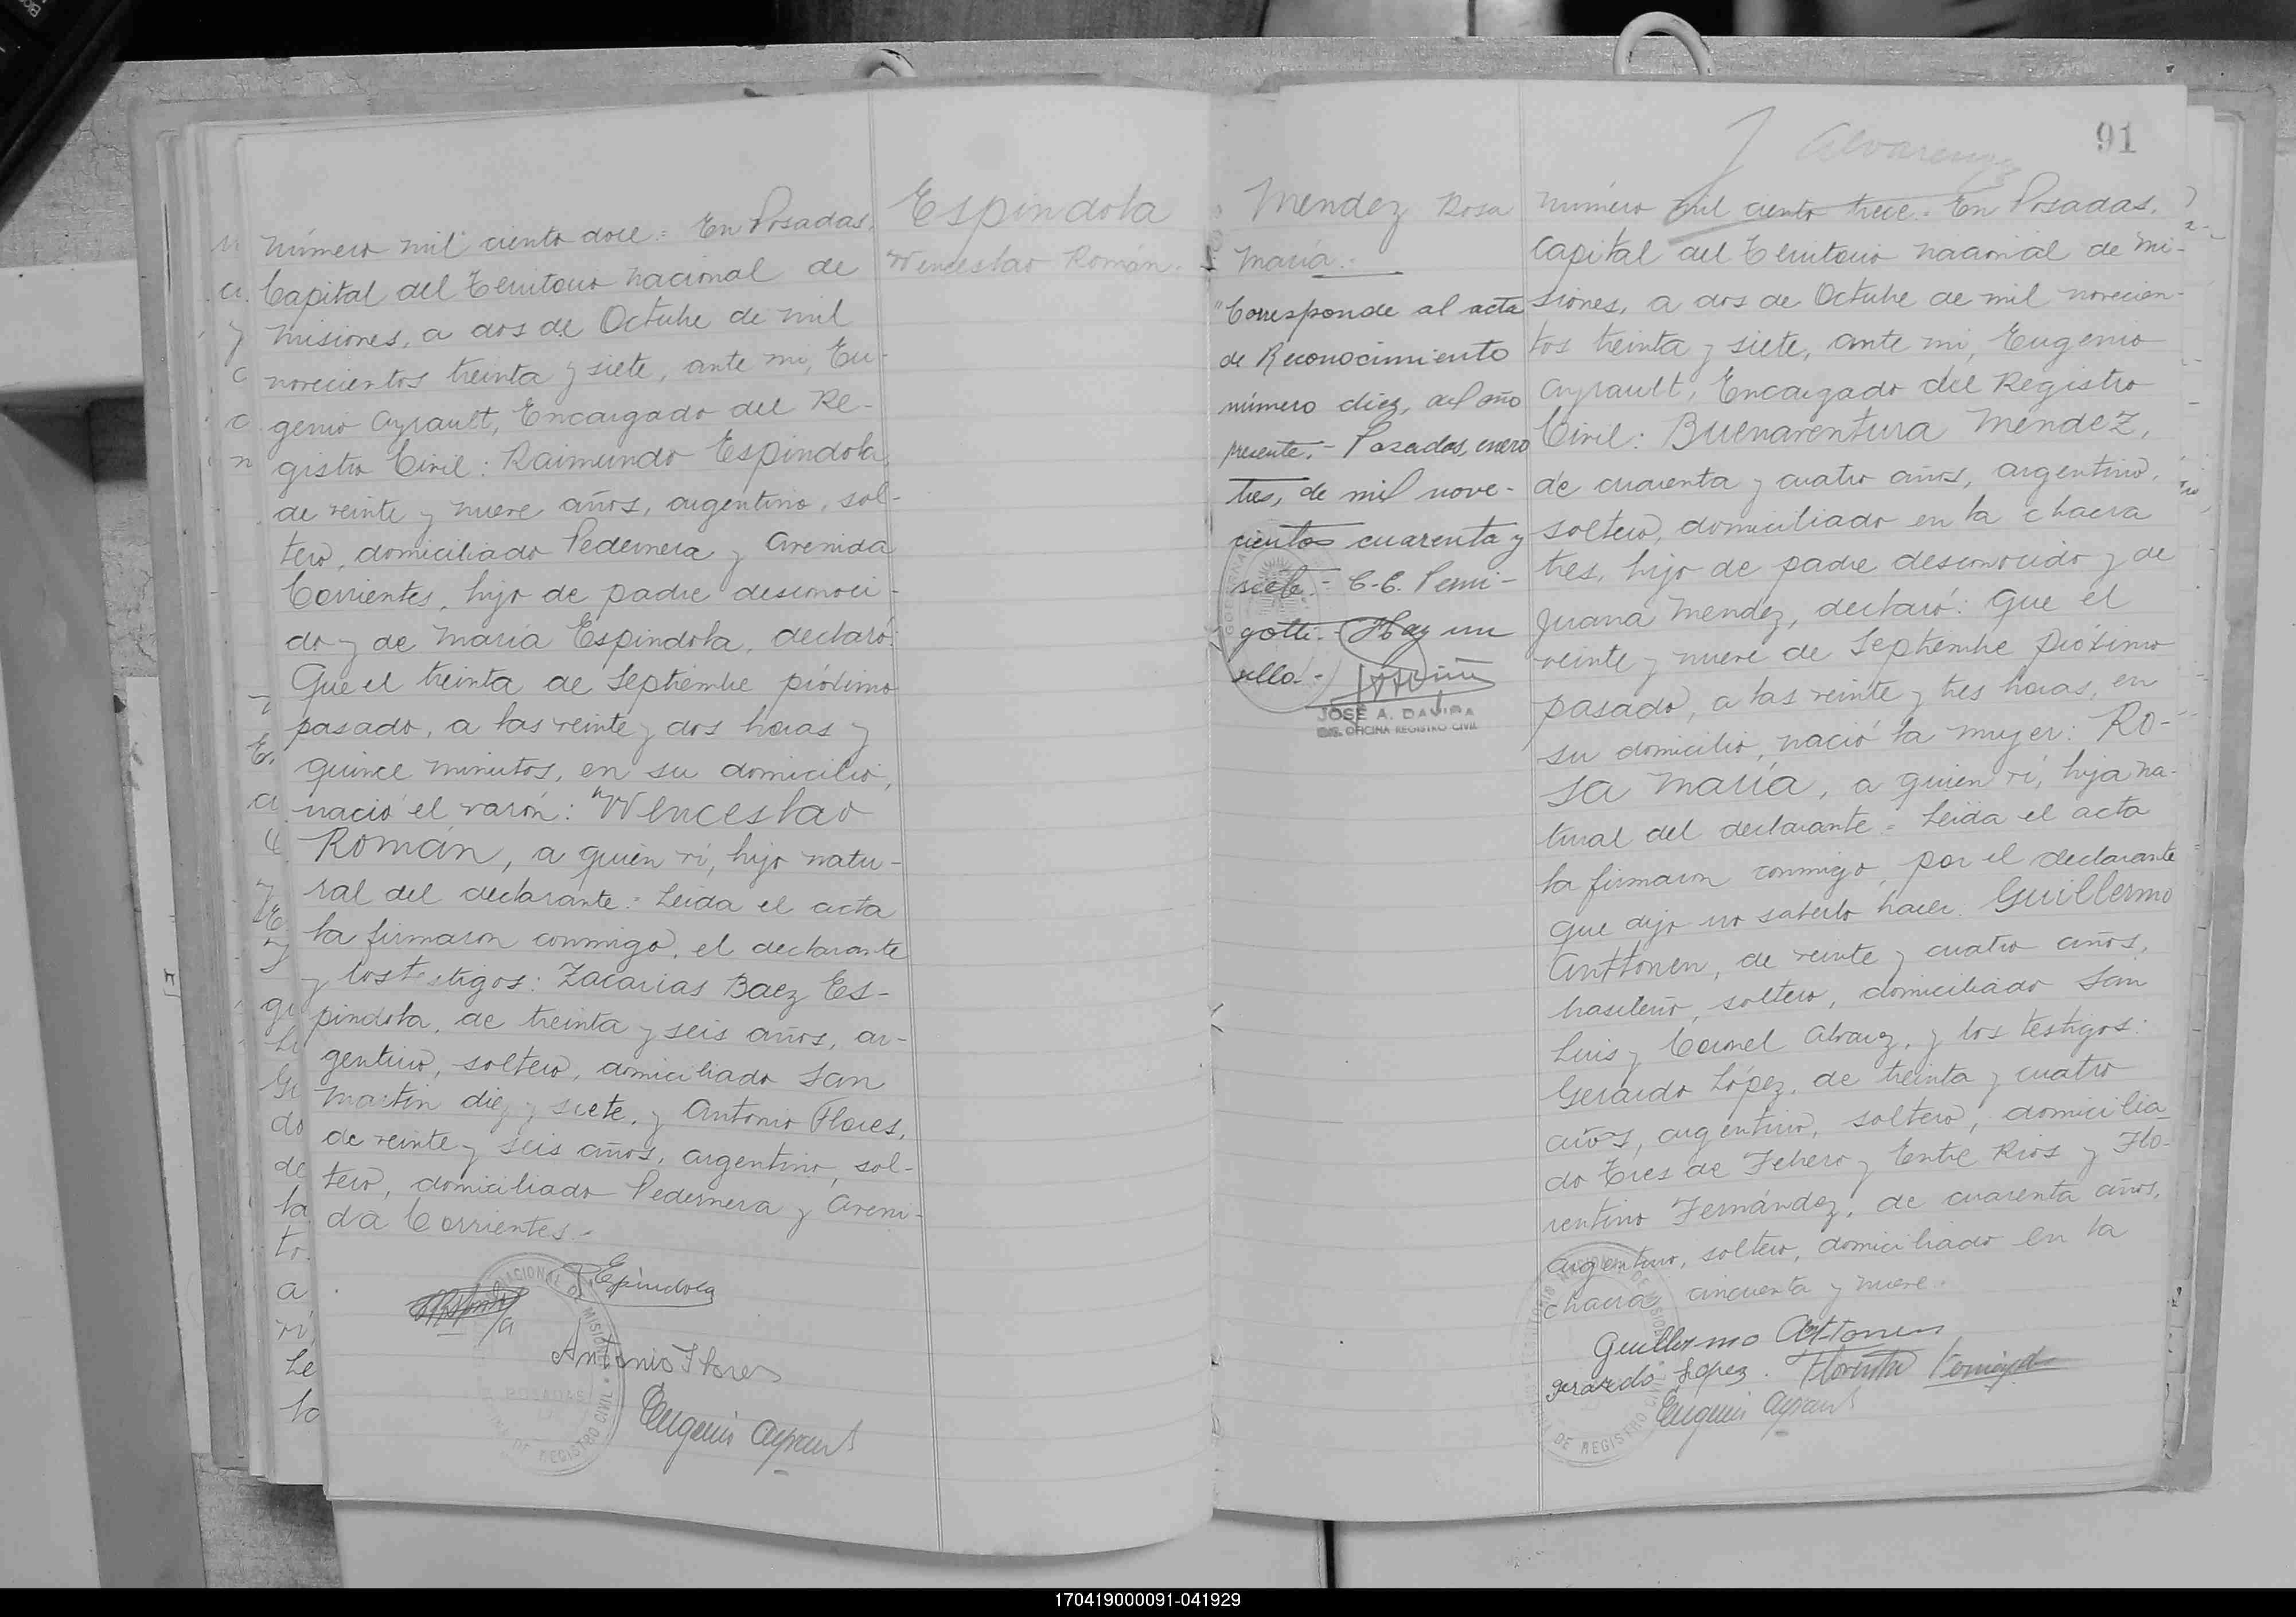 Número mil ciento doce = En Posadas,
Capital del Territorio nacional de
Misiones, a dos de Octubre de mil
novecientos treinta y siete, ante mi, Eu-
genio Ayrault, Encargado del Re-
gistro Civil: Raimundo Espindola,
de veinte y nueve años, argentino, sol-
tero, domiciliado Pedernera y Avenida
Corrientes, hijo de padre desconoci-
do y de María Espindola, declaró:
Que el treinta de Septiembre próximo
pasado, a las veinte y dos horas y
quince minutos, en su domicilio,
nació el varón: Wenceslao
Román, a quien ví, hijo natu-
ral del declarante = Leida el acta
la firmaron conmigo, el declarante
y los testigos: Zacarias Baez Es-
pindola, de treinta y seis años, ar-
gentino, soltero, domiciliado San
Martín diez y siete, y Antonio Flores,
de veinte y seis años, argentino, sol-
tero, domiciliado Pedernera y Aveni-
da Corrientes.-
R. Espindola
Antonio Flores
Eugenio Ayrault
NACIONAL DE MISIONES
POSADAS
DE REGISTRO CIVIL
Espindola
Wenceslao Román.
Mendez Rosa
María.-
"Corresponde al acta
de Reconocimiento
número diez, del año
presente.- Posadas, enero
tres, de mil nove-
cientos cuarenta y
siete.- C.E. Pemi-
gotti.- Hay un
sello.-
JOSÉ A. DAVIÑA
OFICINA REGISTRO CIVIL
Alvarenga
91
Número mil ciento trece. En Posadas,
Capital del Territorio nacional de Mi-
siones, a dos de Octubre de mil novecien-
tos treinta y siete, ante mi, Eugenio
Ayrault, Encargado del Registro
Civil: Buenaventura Mendez,
de cuarenta y cuatro años, argentino,
soltero, domiciliado en la chacra
tres, hijo de padre desconocido y de
Juana Mendez, declaró: Que el
veinte y nueve de Septiembre próximo
pasado, a las veinte y tres horas, en
su domicilio, nació la mujer: Ro-
sa María, a quien ví, hija na-
tural del declarante = Leida el acta
la firmaron conmigo, por el declarante
que dijo no saberlo hacer. Guillermo
Anttonen, de veinte y cuatro años,
brasileño, soltero, domiciliado San
Luis y Coronel Alvarez, y los testigos:
Gerardo López, de treinta y cuatro
años, argentino, soltero, domicilia
do Tres de Febrero y Entre Rios y Flo-
rentino Fernández, de cuarenta años,
argentino, soltero, domiciliado en la
chacra cincuenta y nueve.
Guillermo Anttonen
Gerardo López. Florentino Fernández
Eugenio Ayrault
DE REGISTRO CIVIL
170419000091-041929